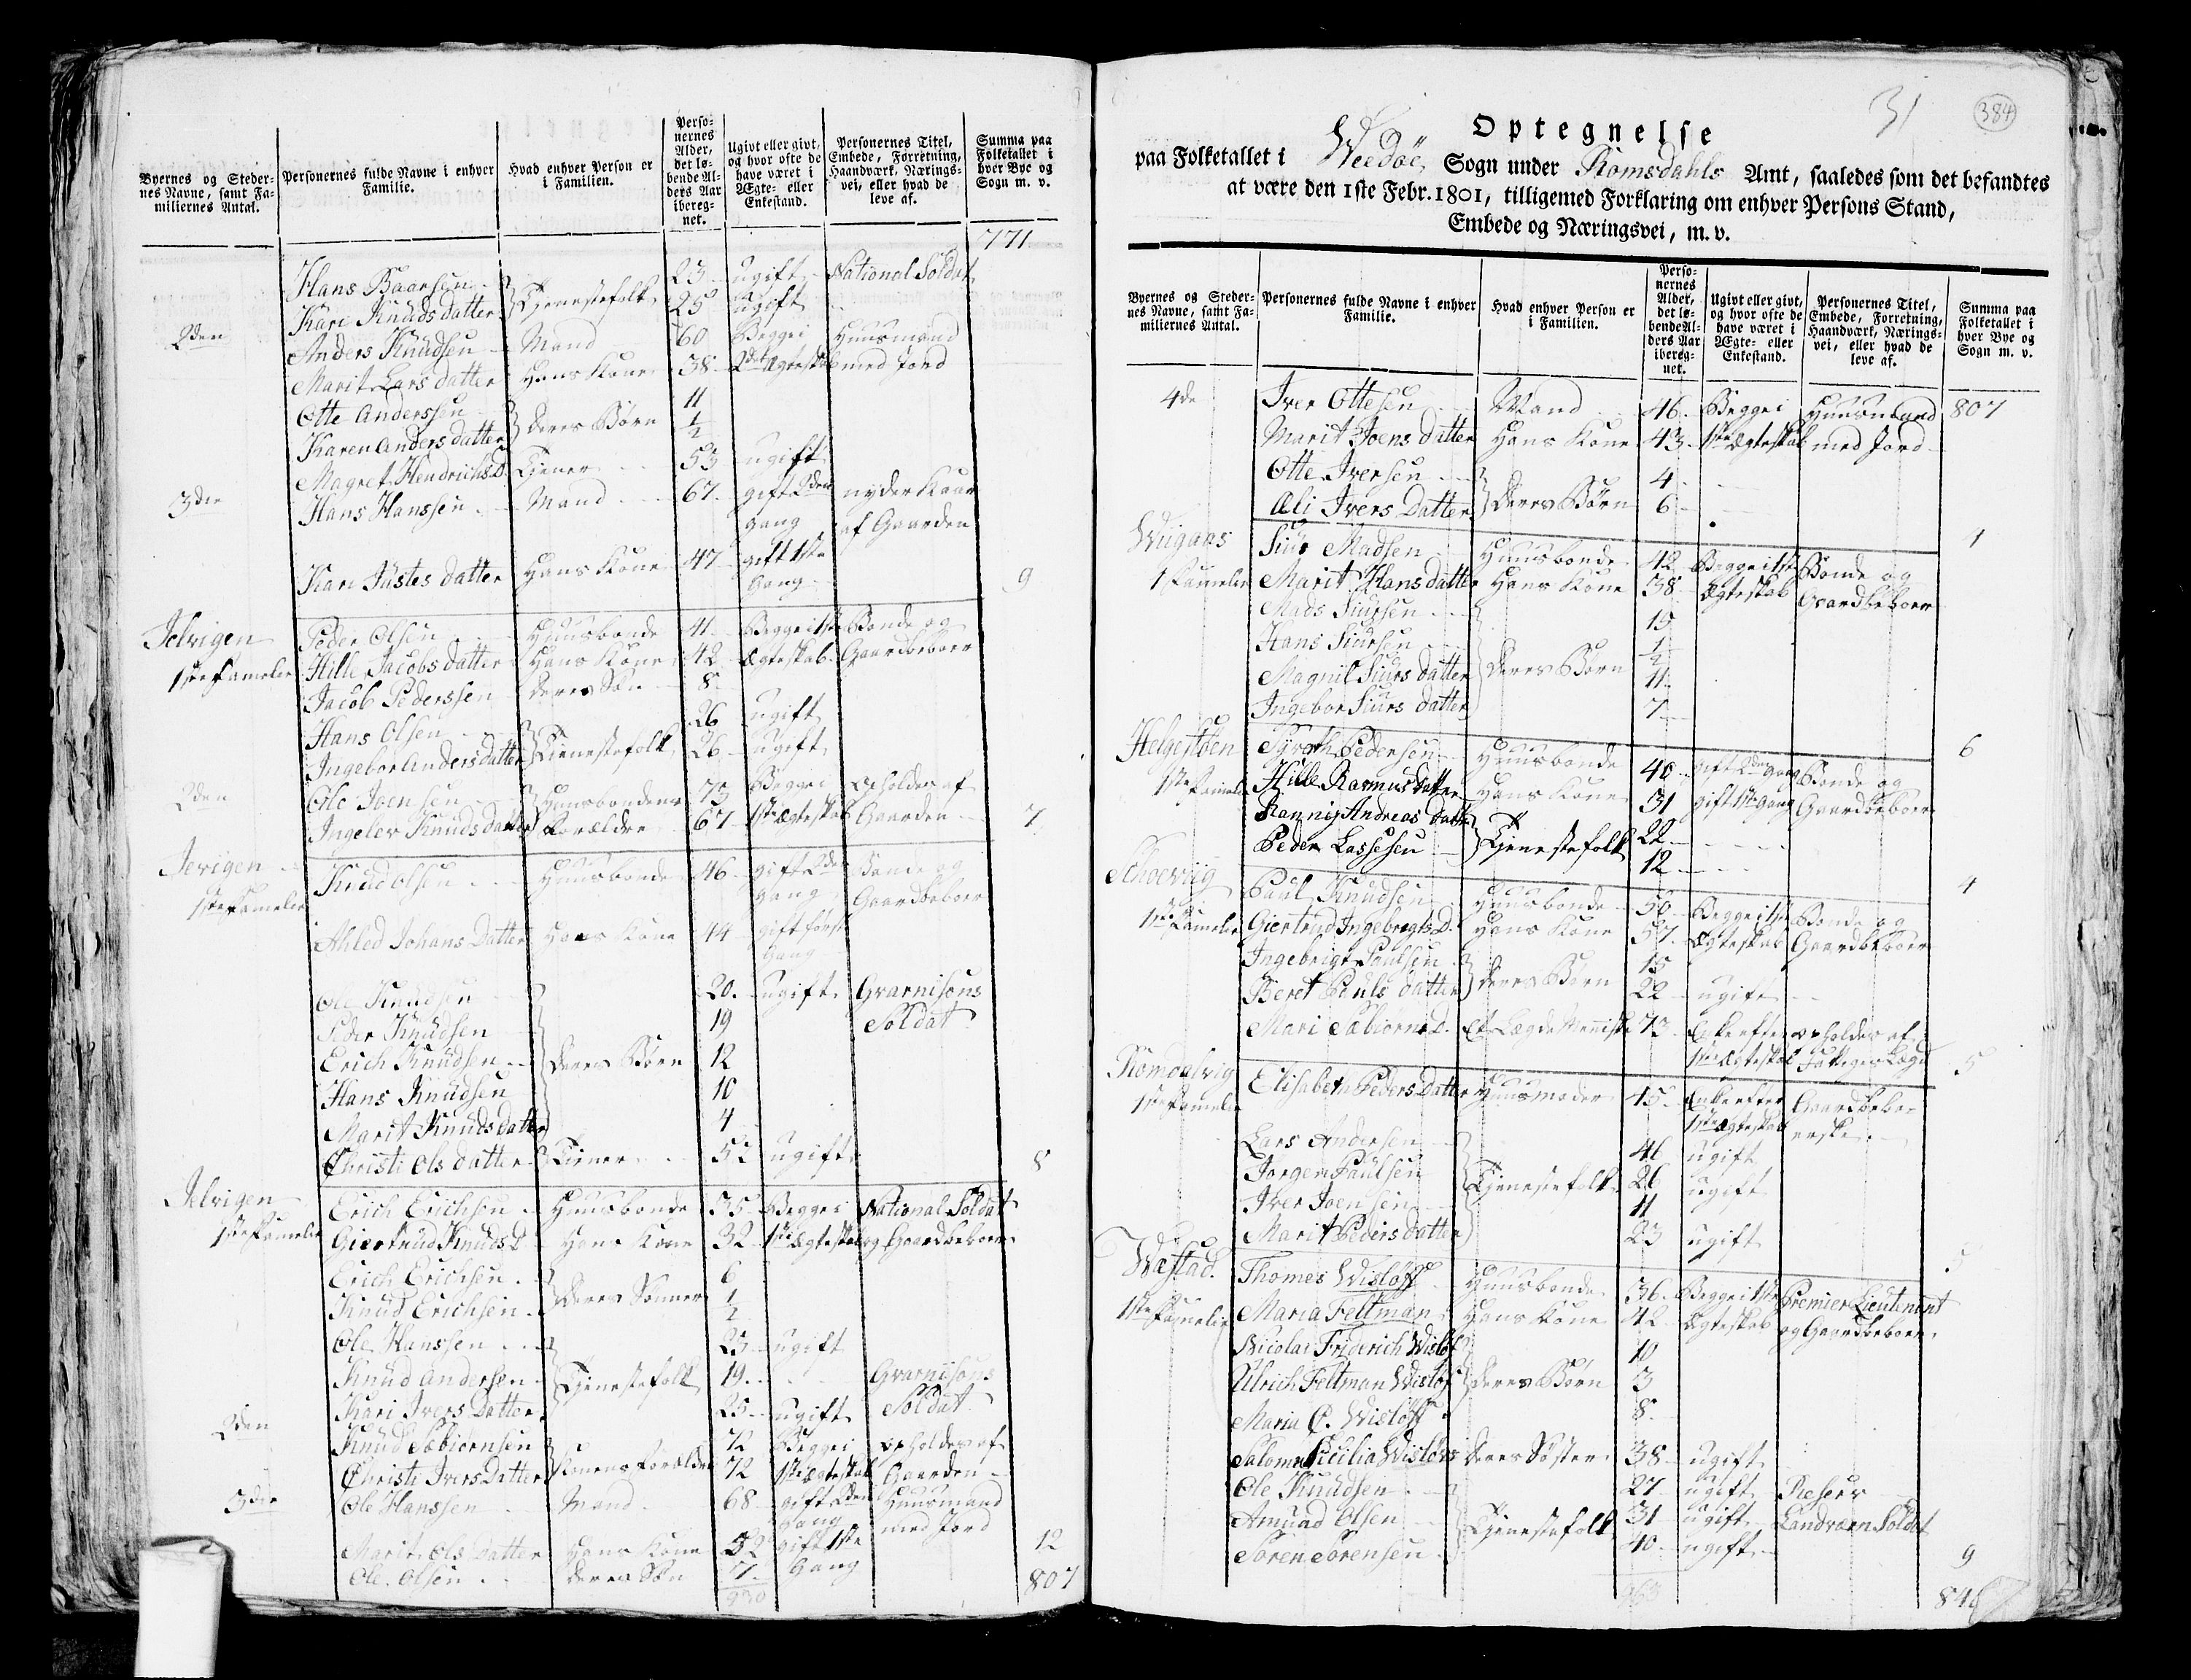 Byernes og Steder-
nes Navne, samt Fa-
miliernes Antal.
Personernes fulde Navne i enhver
Familie.
Hvad enhver Person er
i Familien.
Perso-
nernes
Alder,
det lø-
bende Al-
ders Aar
ibereg-
net.
Ugivt eller givt,
og hvor ofte de
have været i
Ægte- eller
Enkestand.
Personernes Titel,
Embede, Forretning,
Haandværk, Nærings-
vei, eller hvad de
leve af.
Summa paa
Folketallet i
hver Bye og
Sogn m. v.
771
Hans Baarsen 23 ugift National Soldat
Kari Knudsdatter Tjenestefolk 25 ugift
2den Anders Knudsen Mand 60 Begge i Huusmand
Marit Larsdatter Hans Kone 38 2det Ægteskab med Jord
Otte Anderssen 11
Karen Andersdatter deres Børn 1/2
Magret Hendrichs D. Tjener 53 ugift
3die Hans Hanssen Mand 67 gift 2den nyder Kaar
gang af Gaarden
Kari Justes datter Hans Kone 47 gift 1ste
Gang 9
Jelvigen Peder Olsen Huusbonde 41 Begge i 1ste Bonde og
1ste Familie Hille Jacobsdatter Hans Kone 42 Ægteskab Gaardbeboer
Jacob Pederssen deres Søn 8
Hans Olsen 26 ugift
Ingebor Andersdatter Tjenestefolk 26 ugift
2den Ole Joensen Huusbondens 73 Begge i opholdes af
Ingeler Knudsdatter Forældre 67 1ste Ægteskab Gaarden 7
Jevigen Knud Olsen Huusbonde 46 gift 2den Bonde og
1ste Familie gang Gaardbeboer
Ahled Johans Datter Hans Kone 44 gift først
Gang
Ole Knudsen 20 ugift Gvarnisons
Peder Knudsen 19 Soldat
Erich Knudsen deres Børn 12
Hans Knudsen 10
Marit Knudsdatter 4
Christi Olsdatter Tjener 52 ugift 8
Jelvigen Erich Erichsen Huusbonde 35 Begge i National Soldat
1ste Familie Giertrud Knuds D Hans Kone 32 1ste Ægteskab og Gaardbeboer
Erich Erichsen 6
Knud Erichsen deres Sønner 1/2
Ole Hanssen 23 ugift
Knud Andersen Tjenestefolk 19 Gvarnisons
Kari Ivers Datter 25 ugift Soldat
2den Knud Sebiørnsen 72 Begge i opholdes af
Christi Ivers Datter Konens Forældre 72 1ste Ægteskab Gaarden
3die Ole Hanssen Mand 68 gift 2den Huusmand
Gang med Jord
Marit Ols Datter Hans Kone 52 gift 1ste 12
Ole Olsen deres Søn 7 Gang
930 807
31
384
Optegnelse
paa Folketallet i Weedøe Sogn under Romsdahls Amt, saaledes som det befandtes
at være den 1ste Febr. 1801, tilligemed Forklaring om enhver Persons Stand,
Embede og Næringsvei, m. v.
Byernes og Steder-
nes Navne, samt Fa-
miliernes Antal.
Personernes fulde Navne i enhver
Familie.
Hvad enhver Person er
i Familien.
Perso-
nernes
Alder,
det lø-
bende Al-
ders Aar
ibereg-
net.
Ugivt eller givt,
og hvor ofte de
have været i
Ægte- eller
Enkestand.
Personernes Titel,
Embede, Forretning,
Haandværk, Nærings-
vei, eller hvad de
leve af.
Summa paa
Folketallet i
hver Bye og
Sogn m. v.
4de Iver Ottesen Mand 46 Begge i Huusmand 807
Marit Joens datter Hans Kone 43 1ste Ægteskab med Jord
Otte Iversen 4
Æli Ivers Datter deres Børn 6
Wiigans Siur Madsen Huusbonde 42 Begge i 1ste Bonde og 1
1 Familie Marit Hansdatter Hans Kone 38 Ægteskab Gaardbeboer
Mads Siursen 15
Hans Siursen 1/2
Magnil Siursdatter deres Børn 11
Ingebor Siurs datter 7
Helgestøen Pedersen Huusbonde 40 gift 2den gang Bonde og 6
1ste Familie Hille Rasmusdatter Hans Kone 31 gift 1ste Gang Gaardbeboer
Rannig Andreas datter 22
Peder Lassesen Tjenestefolk 12
Schoeviig Paul Knudsen Huusbonde 50 Begge i 1ste Bonde og 4
1ste Familie Giertrud Ingebregts D. Hans Kone 57 Ægteskab Gaardbeboer
Ingebrigt Paulsen 15
Beret Pauls datter deres Børn 22 ugift
Mari Sebiørns D. et Lægdemenniske 73 Enke efter opholdes af
1ste Ægteskab Fattiges Lægd
Romdalvig Elisabeth Peders Datter Huusmoder 45 Enke efter Gaardbebo- 5
1ste Familie 1ste Ægteskab erske
Lars Andersen 46 ugift
Jørgen Paulsen Tjenestefolk 26 ugift
Iver Joensen 11
Marit Pedersdatter 23 ugift
Wæstad Thomes Wisløff Huusbonde 36 Begge i 1ste Premier Lieutenant 5
1ste Familie Maria Feltman Hans Kone 42 Ægteskab og Gaardbeboer
Nicolai Friderich Wisløf 10
Ulrich Feltman Wisløf deres Børn 3
Maria C. Wisløff 8
Saloma Cicilia Wisløvs deres Søster 38 ugift
Ole Knudsen 27 ugift Reserv
Amund Olsen Tjenestefolk 31 ugift Landværn Soldat
Søren Sørensen 40 ugift 9
960